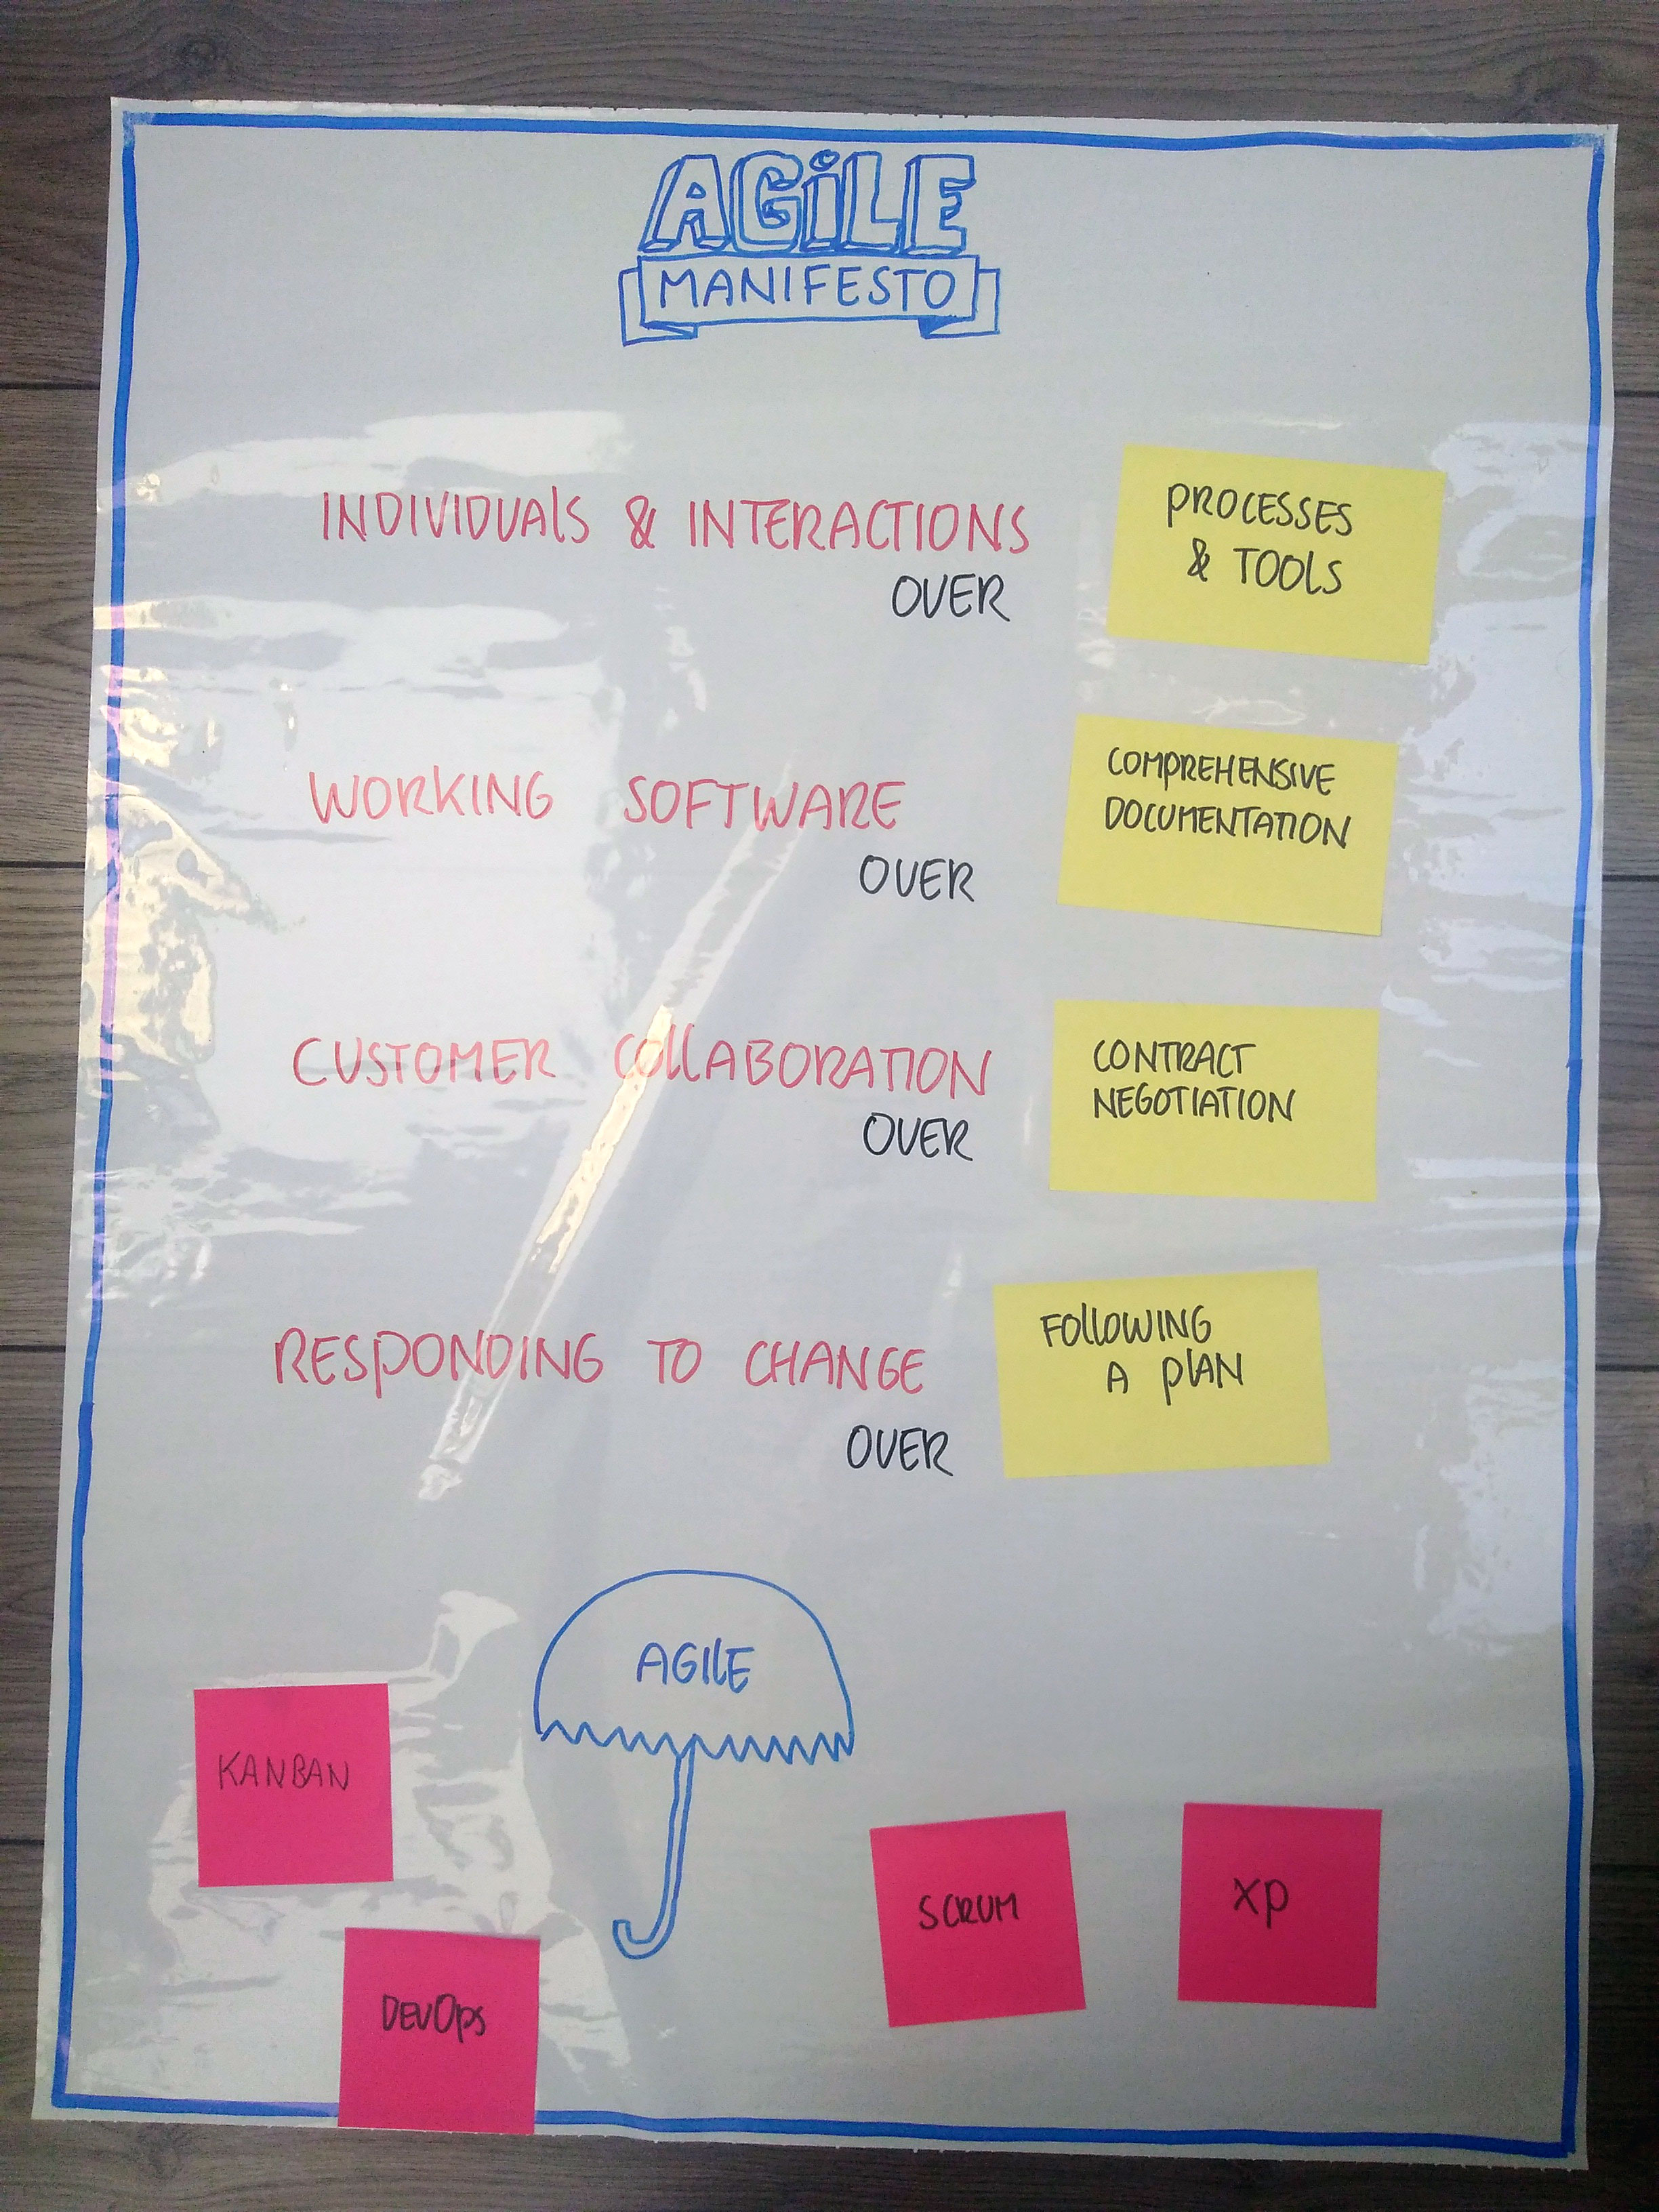 AGiLE
MANIFESTO
INDIVIDUAlS & INTERACTIONS
OVER
PROCESSES
& TOOlS
WORKING SOFTWARE
OVER
COMPREHENSIVE
DOCUMENTATION
CUSTOMER COllABORATION
OVER
CONTRACT
NEGOTIATION
RESPONDING TO CHANGE
OVER
FOllOWING
A PlAN
AGILE
KANBAN
SCRUM
XP
DEVOps